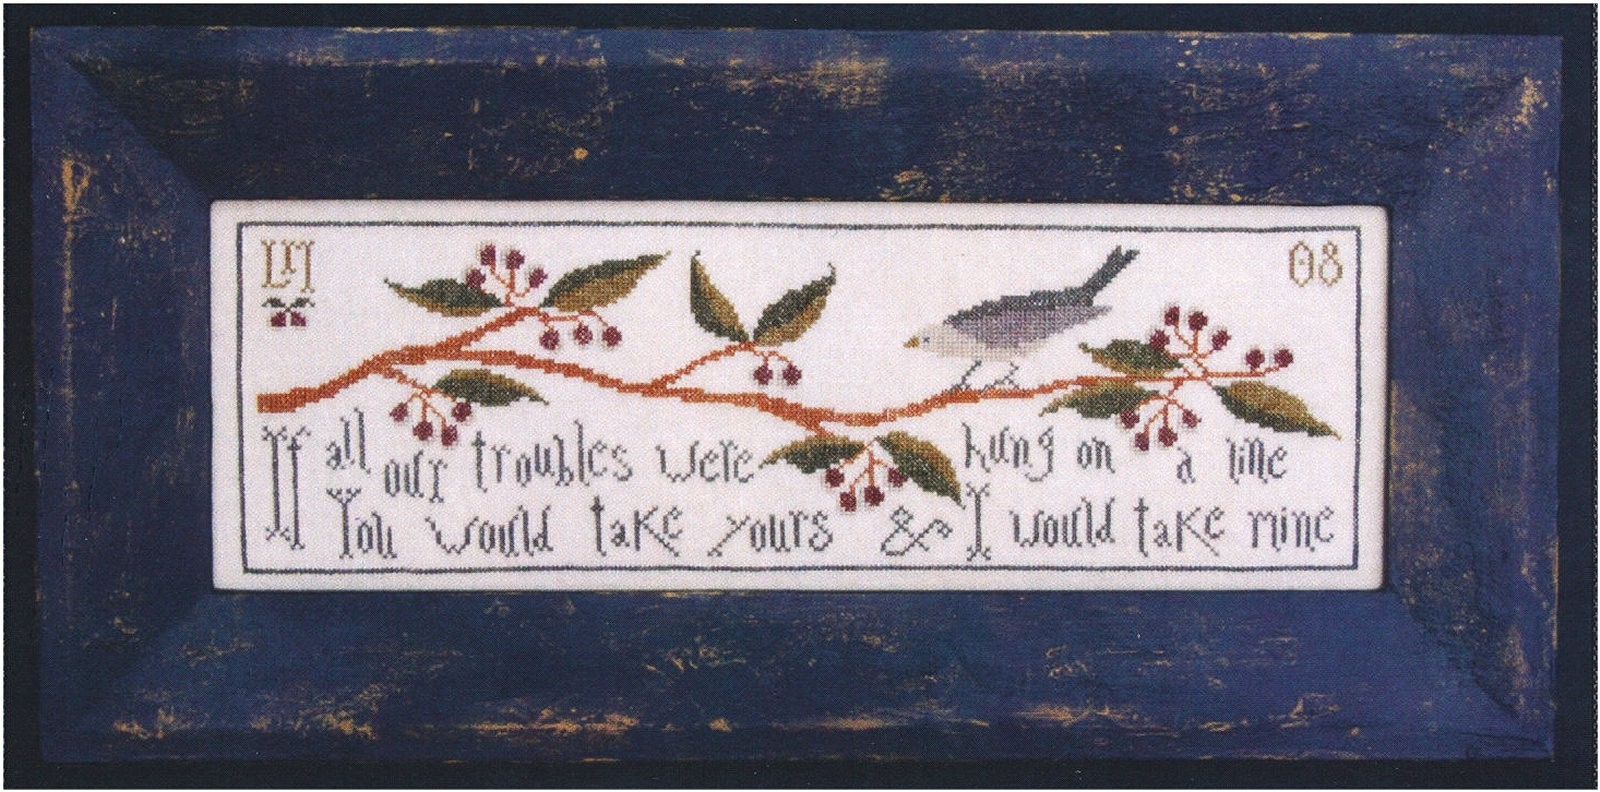 LM
08
If all our troubles were hung on a line
You would take yours & I would take mine